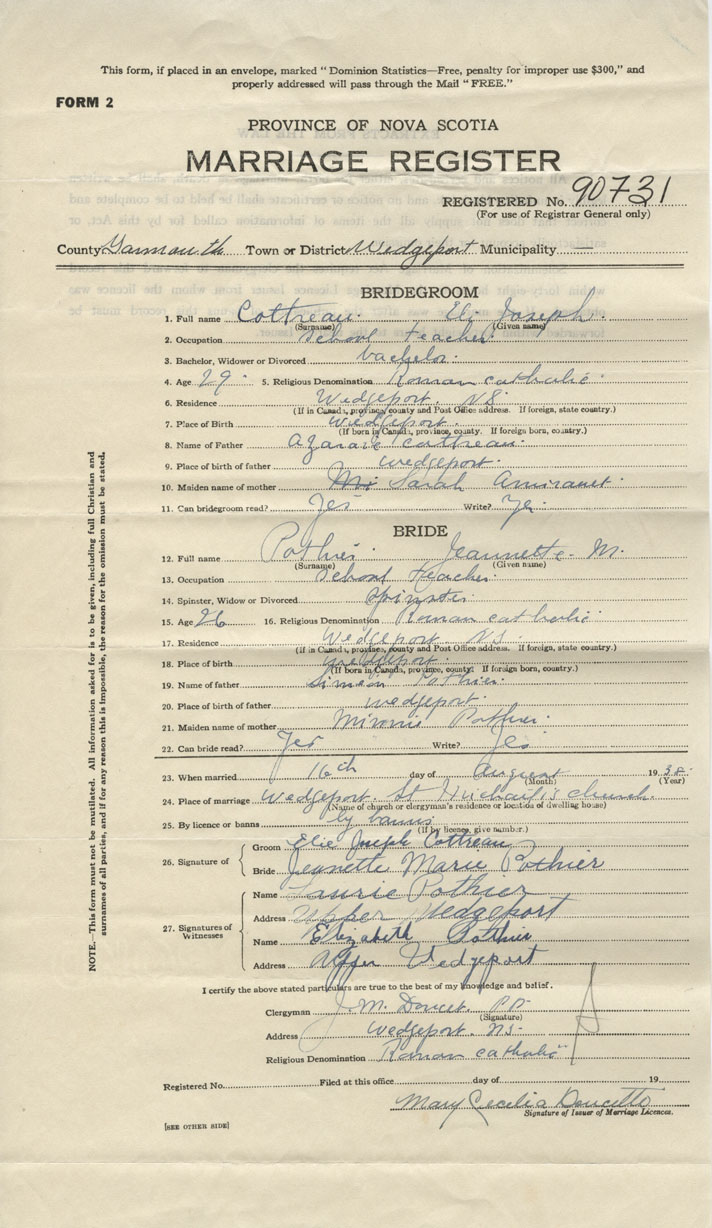 This form, if placed in an envelope, marked "Dominion Statistics—Free, penalty for improper use $300," and
properly addressed will pass through the Mail "FREE."
FORM 2
PROVINCE OF NOVA SCOTIA
MARRIAGE REGISTER
REGISTERED No. 90731
(For use of Registrar General only)
County Yarmouth Town or District Wedgeport Municipality —
BRIDEGROOM
1. Full name Cottreau Eli Joseph
(Surname) (Given name)
2. Occupation School teacher
3. Bachelor, Widower or Divorced bachelor
4. Age 29 5. Religious Denomination Roman catholic
6. Residence Wedgeport. NS.
(If in Canada, province, county and Post Office address. If foreign, state country.)
7. Place of Birth Wedgeport.
(If born in Canada, province, county. If foreign born, country.)
8. Name of Father Azarie Cottreau
9. Place of birth of father Wedgeport.
10. Maiden name of mother Sarah Amirault
11. Can bridegroom read? Yes Write? Yes
BRIDE
12. Full name Pothier Jeannette M.
(Surname) (Given name)
13. Occupation School teacher
14. Spinster, Widow or Divorced Spinster
15. Age 26 16. Religious Denomination Roman catholic
17. Residence Wedgeport. NS.
(If in Canada, province, county and Post Office address. If foreign, state country.)
18. Place of birth Wedgeport
(If born in Canada, province, county. If foreign born, country.)
19. Name of father Simeon Pothier
20. Place of birth of father Wedgeport.
21. Maiden name of mother Minnie Pothier
22. Can bride read? Yes Write? Yes
23. When married 16th day of August 1938
(Month) (Year)
24. Place of marriage Wedgeport. St Michael's church.
(Name of church or clergyman's residence or location of dwelling house)
25. By licence or banns by banns
(If by licence, give number.)
26. Signature of Groom Elie Joseph Cottreau
Bride Jeanette Marie Pothier
27. Signatures of Witnesses
Name Laurie Pothier
Address Upper Wedgeport
Name Elizabeth Pothier
Address Upper Wedgeport
I certify the above stated particulars are true to the best of my knowledge and belief.
Clergyman J. M. Doucet. PP.
(Signature)
Address Wedgeport. NS.
Religious Denomination Roman catholic
Registered No. Filed at this office day of 19
Mary Cecilia Doucette
Signature of Issuer of Marriage Licences.
[SEE OTHER SIDE]
NOTE.—This form must not be mutilated. All information asked for is to be given, including full Christian and
surnames of all parties, and if for any reason this is impossible, the reason for the omission must be stated.